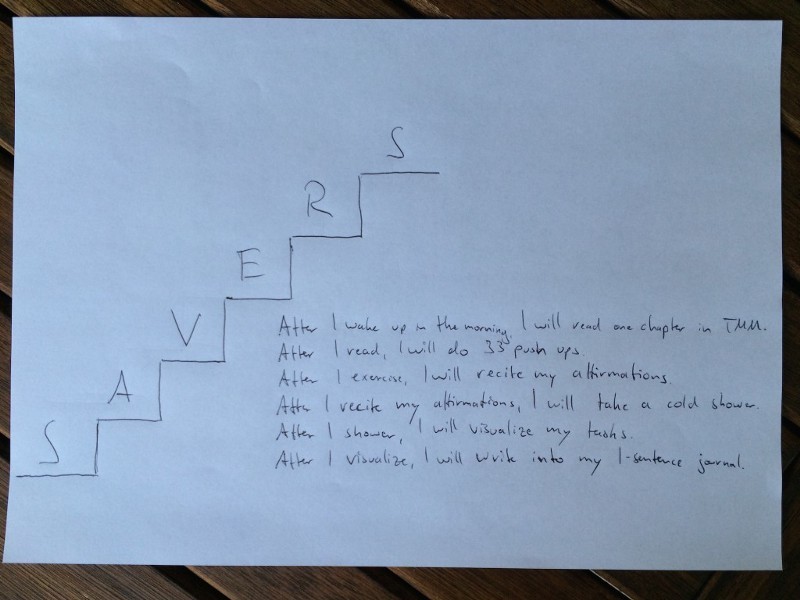 S
R
E
V
A
S
After I wake up in the morning, I will read one chapter in TMM.
After I read, I will do 33 push ups.
After I exercise, I will recite my affirmations.
After I recite my affirmations, I will take a cold shower.
After I shower, I will visualize my tasks.
After I visualize, I will write into my 1-sentence journal.